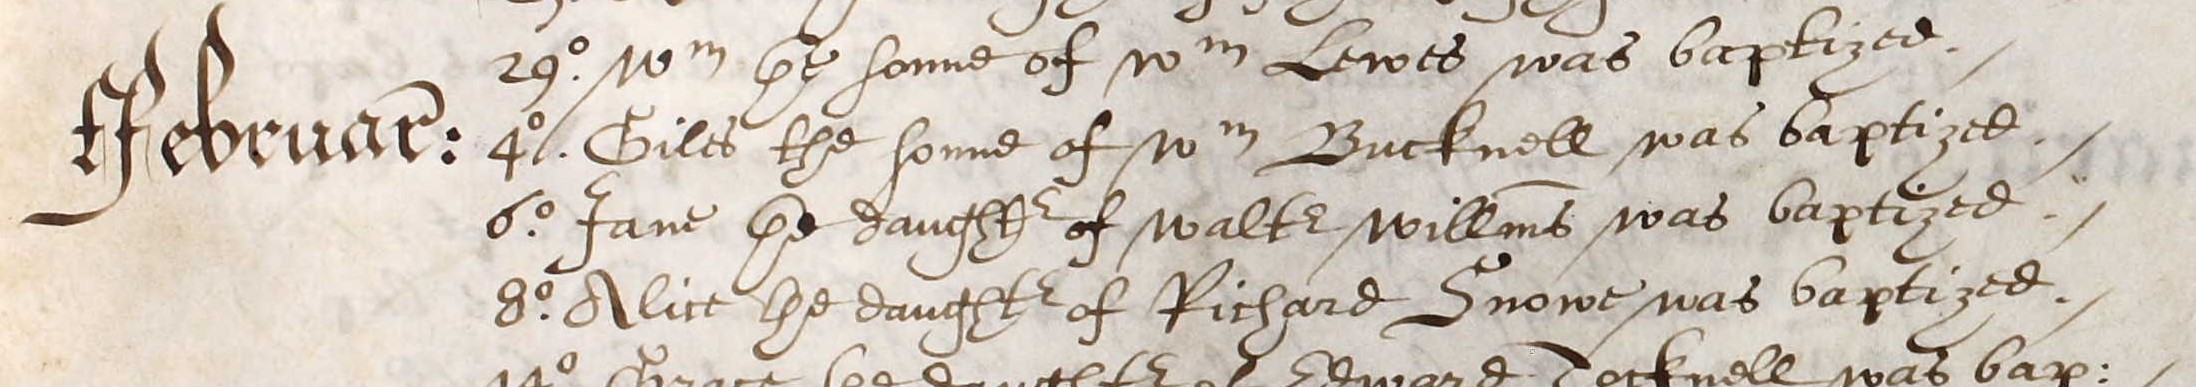 29º. Wm ye sonne of Wm Lewes was baptized.
ffebruar: 4º. Giles the sonne of Wm Bucknell was baptized.
6º. Jane ye daughtr of Waltr Willms was baptized.
8º. Alice the daughtr of Richard Snowe was baptized.
14º Grace the daughtr of Edward Tocknell was bap: